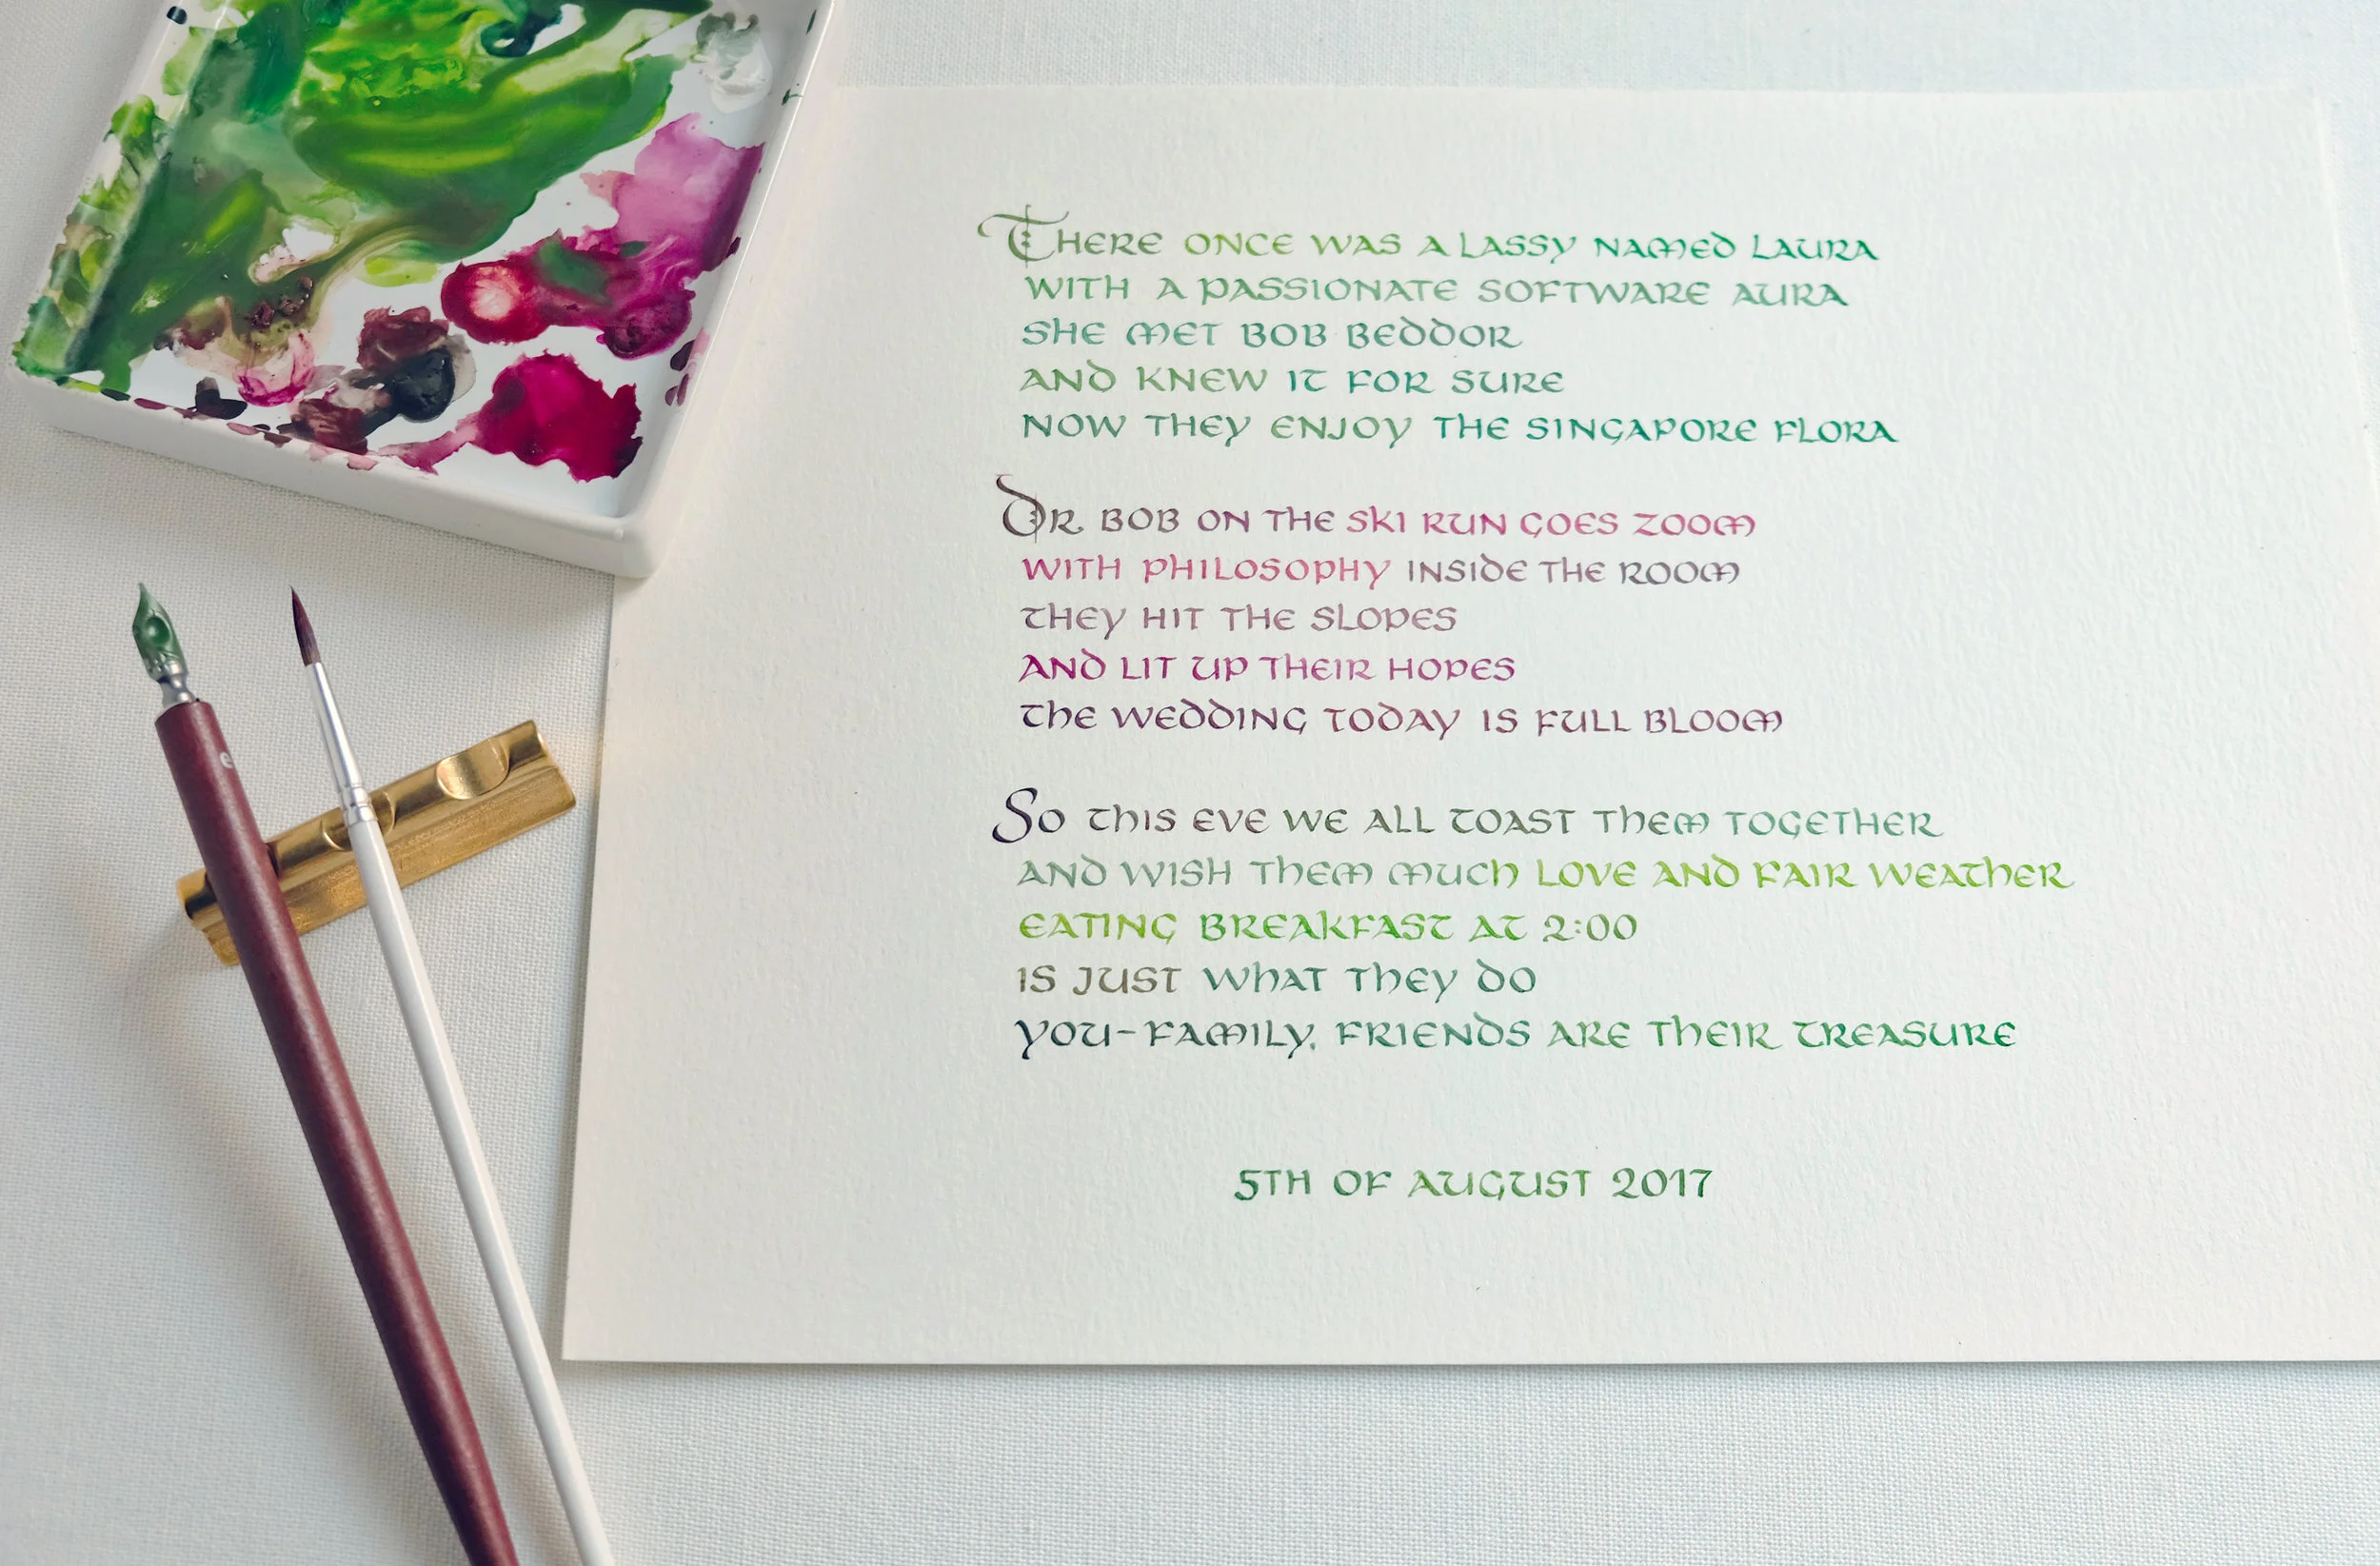 There once was a lassy named Laura
with a passionate software aura
she met Bob Beddor
and knew it for sure
now they enjoy the Singapore flora
Dr Bob on the ski run goes zoom
with philosophy inside the room
they hit the slopes
and lit up their hopes
the wedding today is full bloom
So this eve we all toast them together
and wish them much love and fair weather
eating breakfast at 2:00
is just what they do
you-family, friends are their treasure
5th of August 2017
e